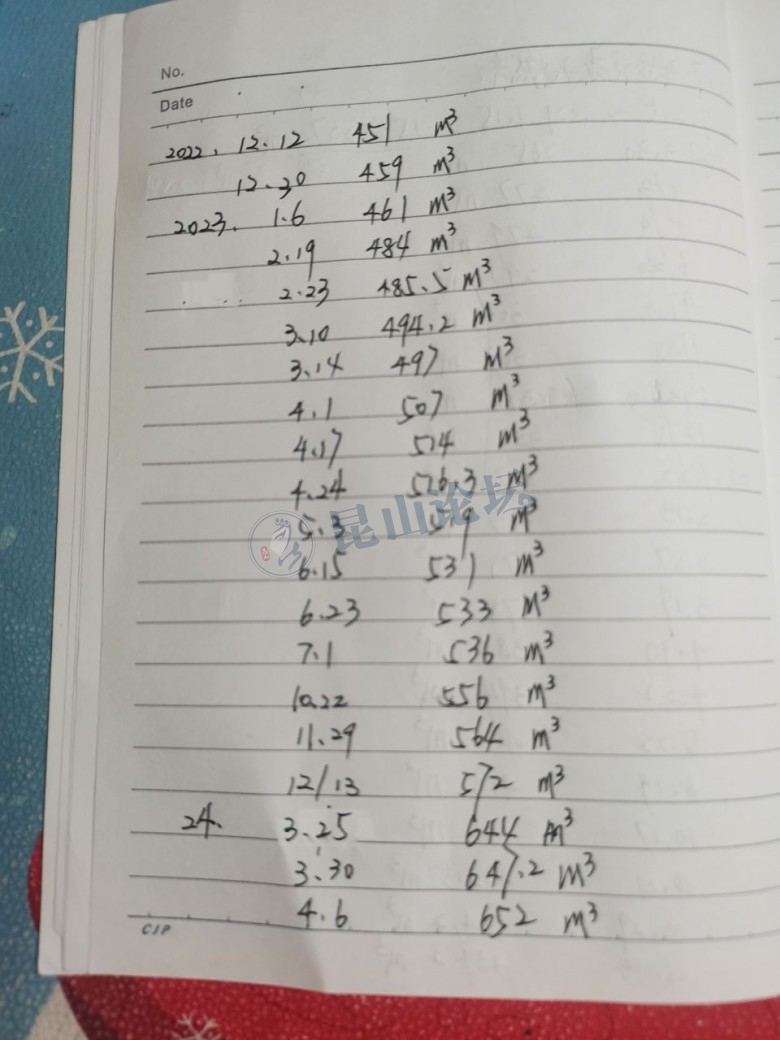 No.
Date
2022. 12.12 451 m³
12.30 459 m³
2023. 1.6 461 m³
2.19 484 m³
2.23 485.5 m³
3.10 494.2 m³
3.14 497 m³
4.1 507 m³
4.17 514 m³
4.24 516.3 m³
5.3 519 m³
昆山论坛
6.15 531 m³
6.23 533 m³
7.1 536 m³
10.22 556 m³
11.29 564 m³
12/13 572 m³
24. 3.25 644 m³
3.30 647.2 m³
4.6 652 m³
CIP